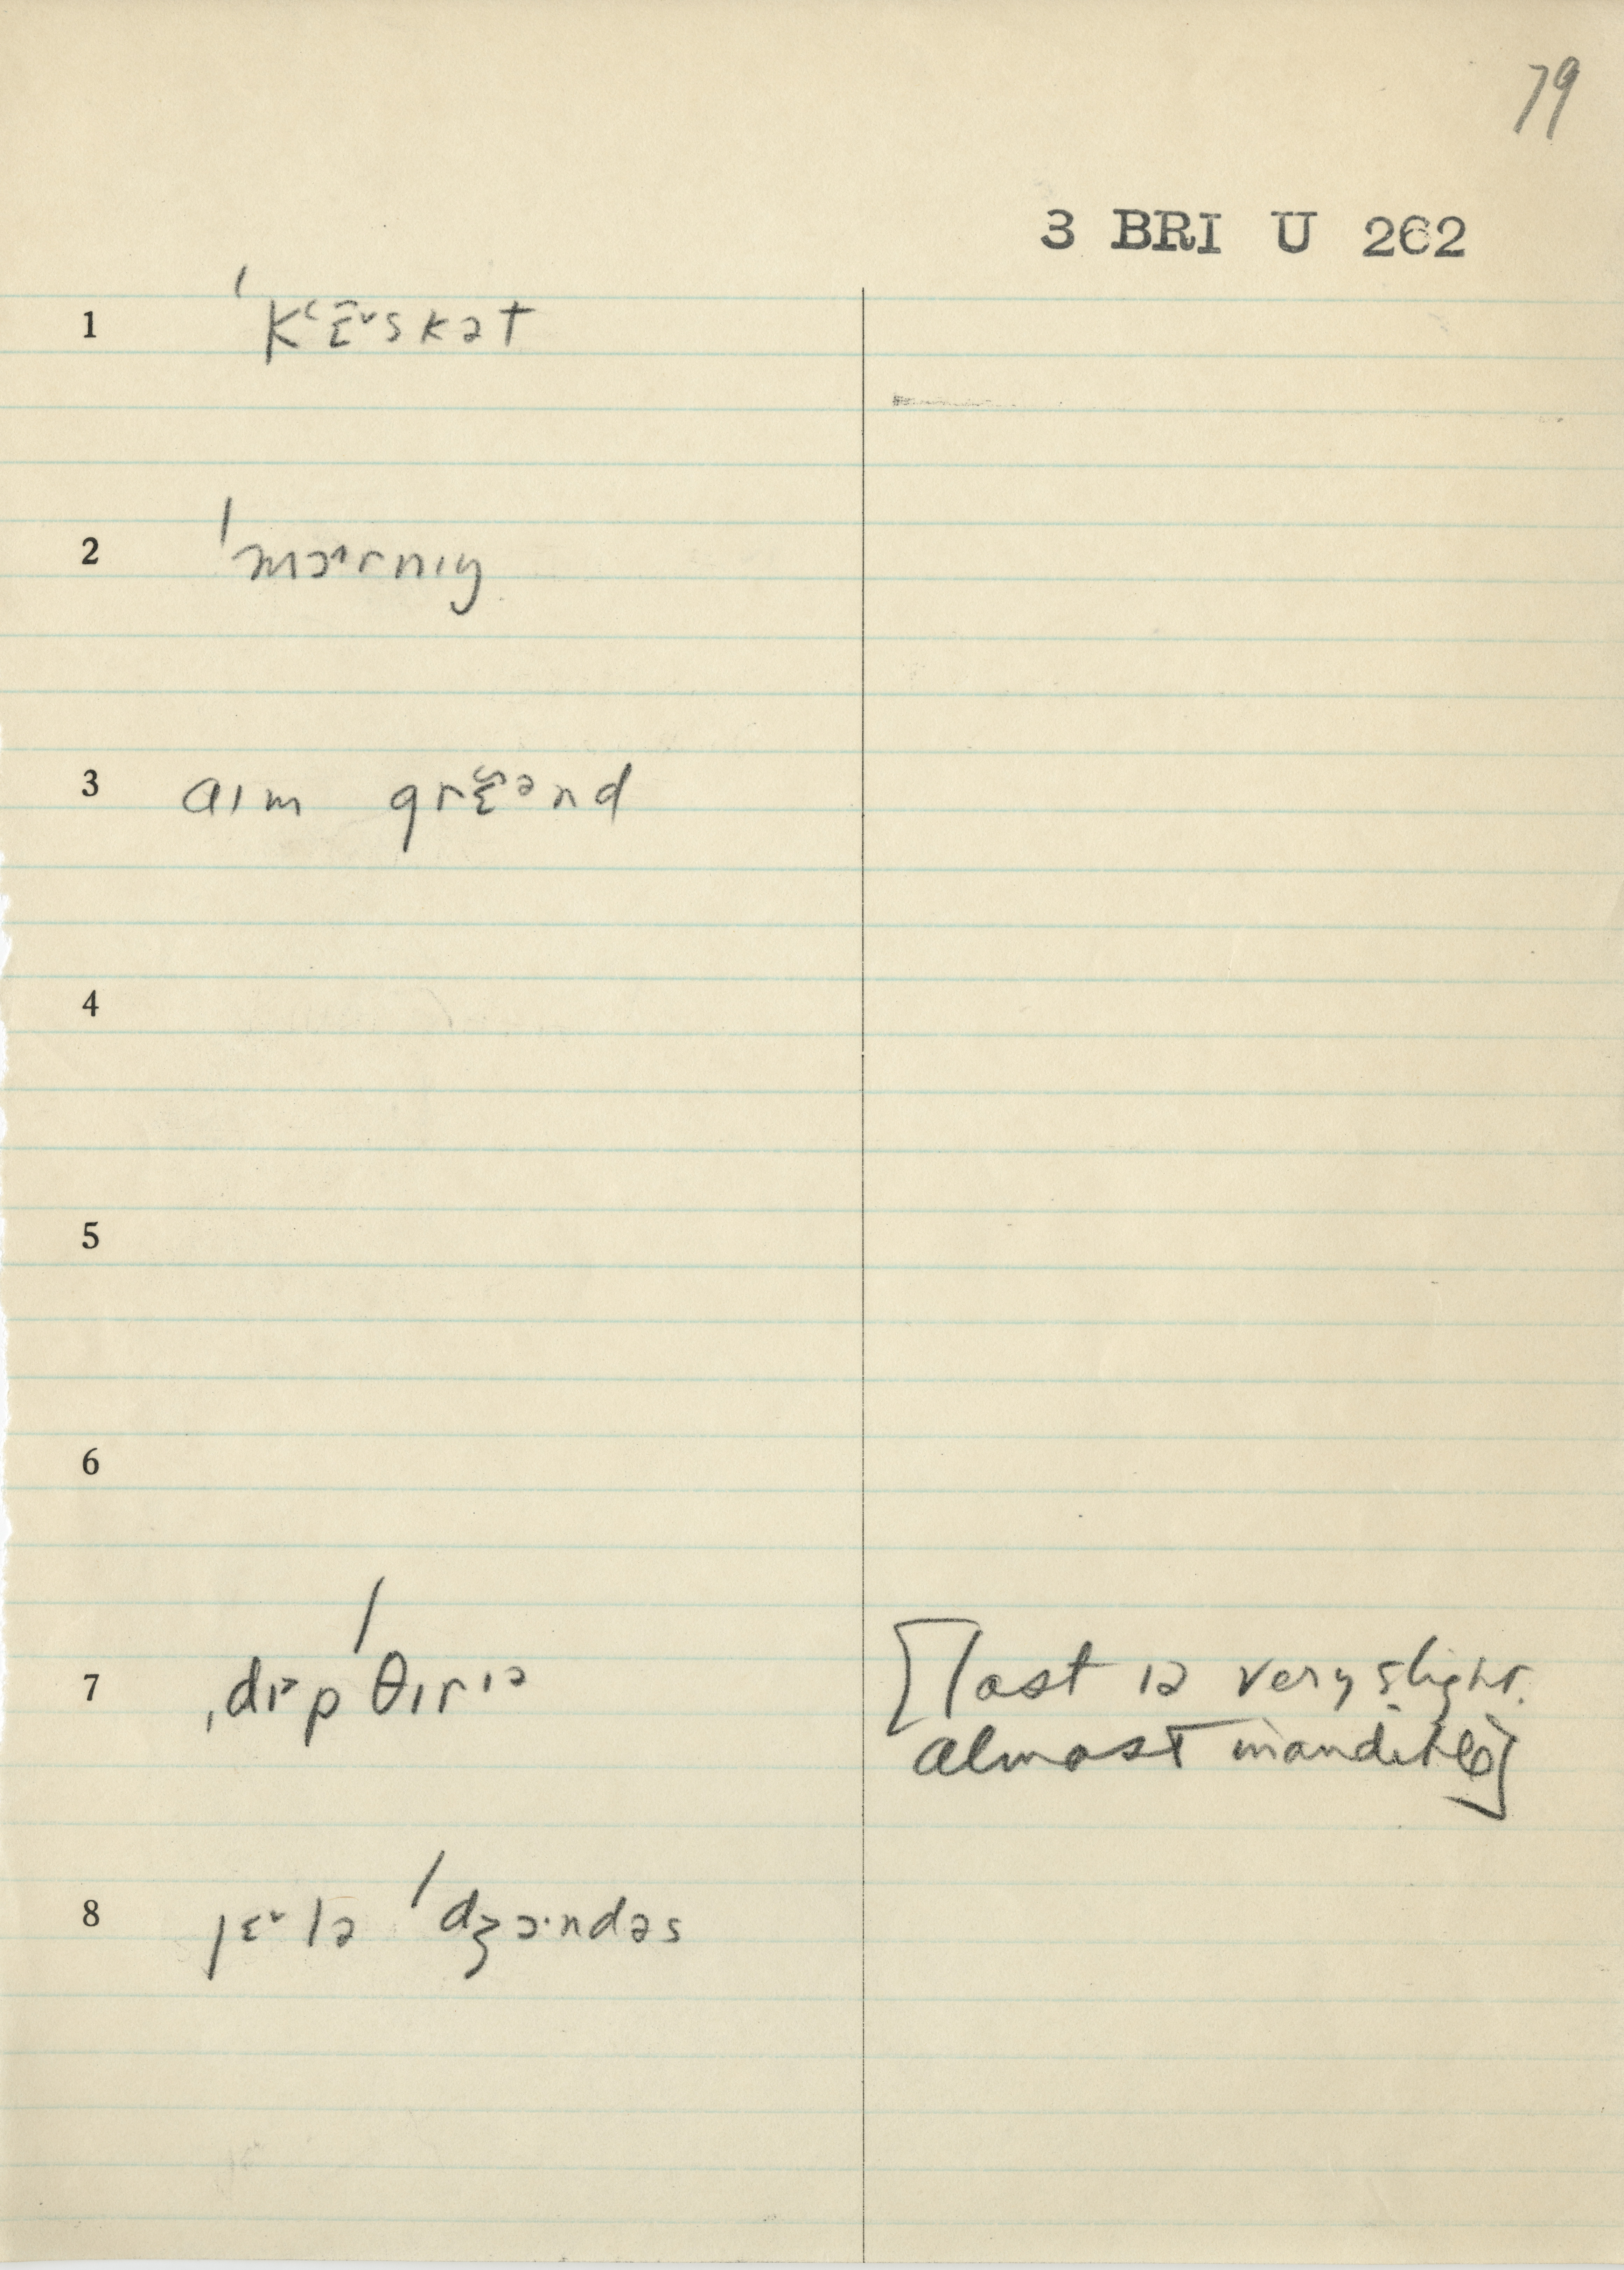 79
3 BRI U 262
1 ˈkʻɛ̄˅skət
2 ˈmɔ˄rnɪŋ
3 aɪm grɛ̃ənd
4
5
6
7 ˌdɪpˈθɪrɪə
[last ɪə very slight.
almost inaudible]
8 jɛ˅lə ˈdʒɔ·ndəs